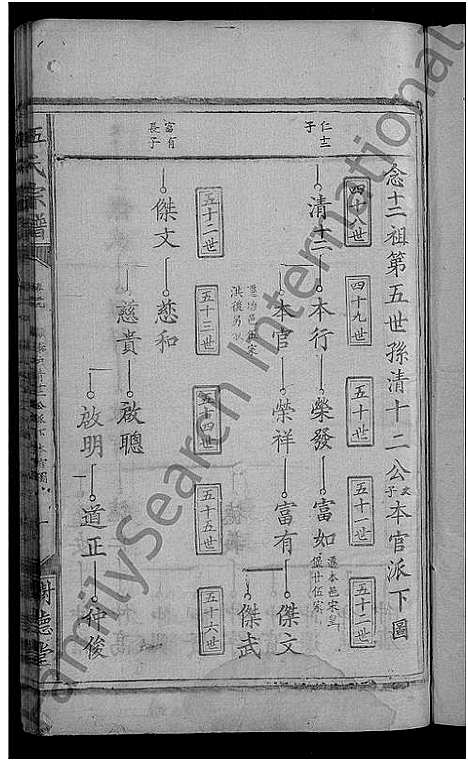 念十二祖第五世孫清十二公次子本官派下圖
四十八世
四十九世
五十世
五十一世
五十二世
仁士子
清十二
本行
榮發
富如
遷本邑宋
本官
榮祥
富有
傑文
傑武
五十二世
五十三世
五十四世
五十五世
五十六世
富有長子
傑文
慈和
慈貴
啟聰
啟明
道正
仲俊
氏宗譜
德堂
FamilySearch International